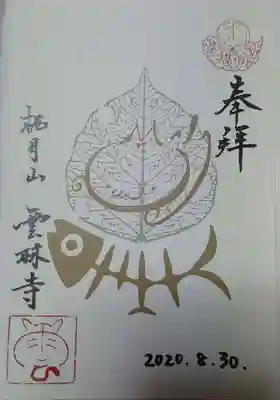 奉拝
栖月山
雲林寺
2020.8.30.